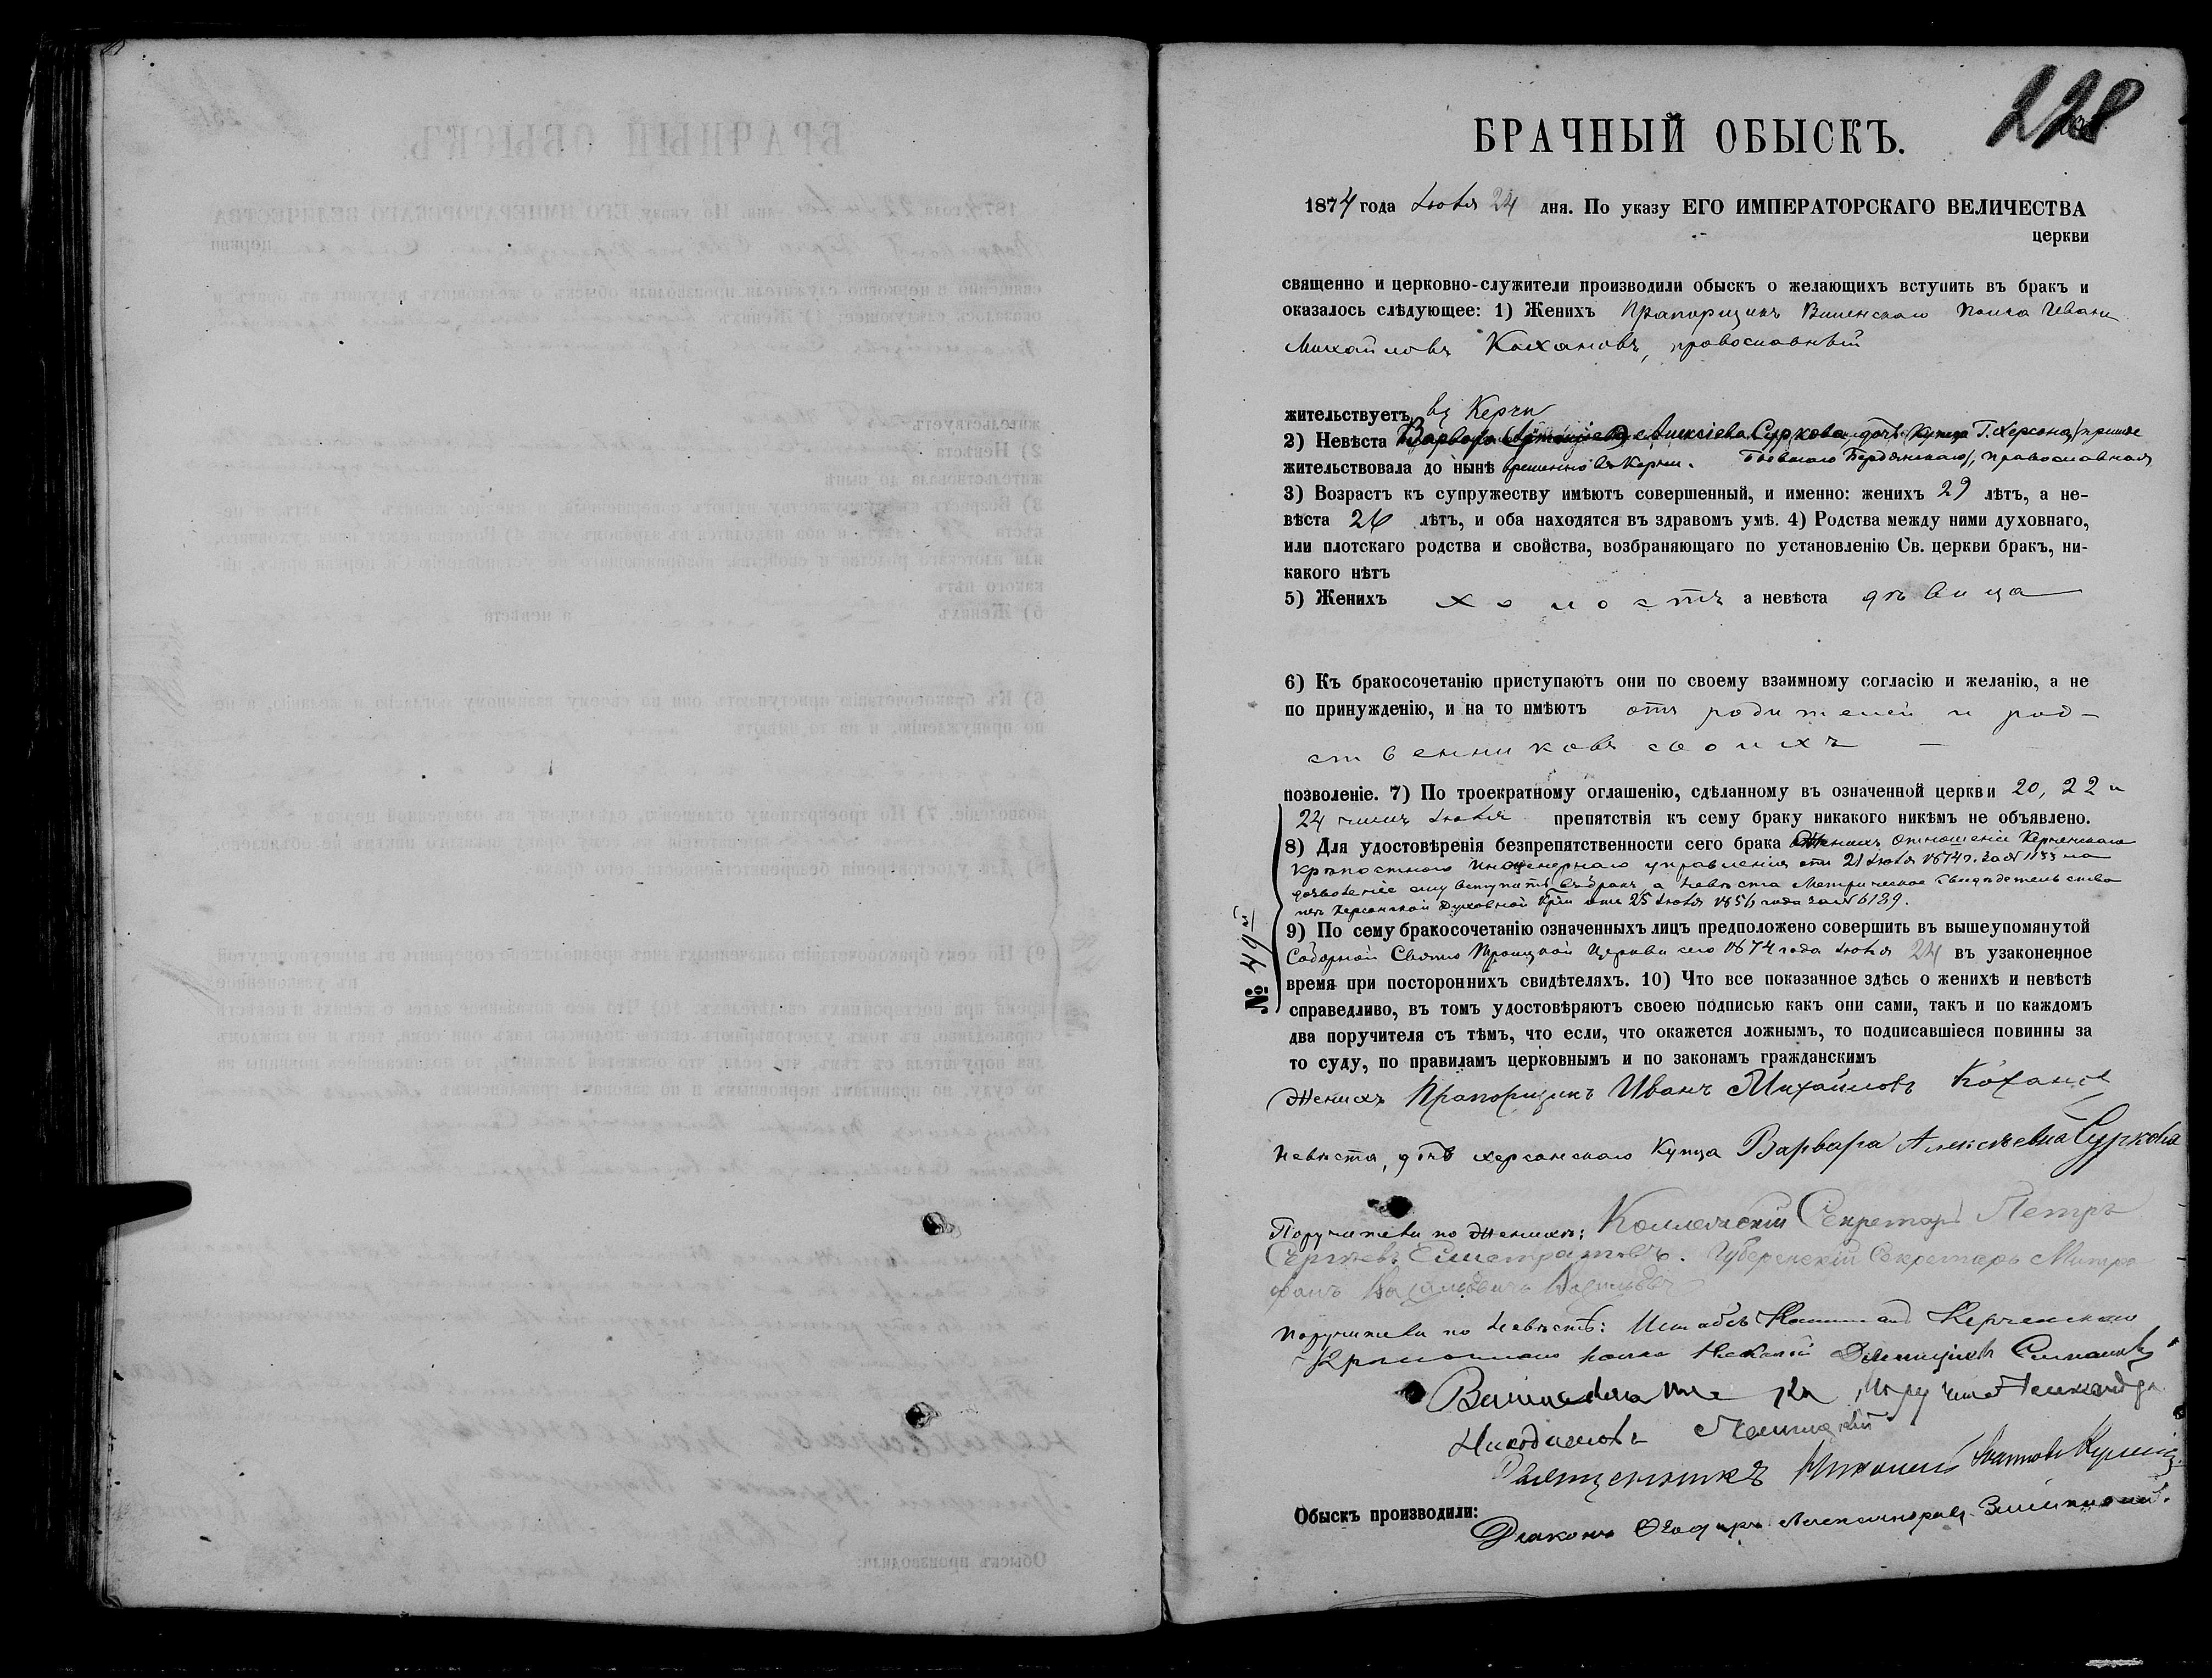 228
БРАЧНЫЙ ОБЫСКЪ.
1874 года Іюля 24 дня. По указу ЕГО ИМПЕРАТОРСКАГО ВЕЛИЧЕСТВА
церкви
священно и церковно-служители производили обыскъ о желающихъ вступить въ бракъ и
оказалось слѣдующее: 1) Женихъ Прапорщикъ Виленскаго Полка Иванъ
Михайловъ Кохановъ, православный
жительствуетъ въ Керчи
2) Невѣста Варвара Алексіева Суркова, дочь Купца Г. Херсона
жительствовала до нынѣ временно въ Керчи. православная
3) Возрастъ къ супружеству имѣютъ совершенный, и именно: женихъ 29 лѣтъ, а не-
вѣста 26 лѣтъ, и оба находятся въ здравомъ умѣ. 4) Родства между ними духовнаго,
или плотскаго родства и свойства, возбраняющаго по установленію Св. церкви бракъ, ни-
какого нѣтъ
5) Женихъ холостъ а невѣста дѣвица
6) Къ бракосочетанію приступаютъ они по своему взаимному согласію и желанію, а не
по принужденію, и на то имѣютъ отъ родителей и род-
ственниковъ своихъ
позволеніе. 7) По троекратному оглашенію, сдѣланному въ означенной церкви 20, 22 и
24 чиселъ Іюля препятствія къ сему браку никакого никѣмъ не объявлено.
8) Для удостовѣренія безпрепятственности сего брака Женихъ отношеніе Керченскаго
крѣпостнаго Инженернаго управленія отъ 21 Іюля 1874 г. за № 1133 на
дозволеніе ему вступить въ бракъ, а невѣста Метрическое свидѣтельство
изъ Херсонской Духовной отъ 25 Іюля 1856 года за № 6189.
9) По сему бракосочетанію означенныхъ лицъ предположено совершить въ вышеупомянутой
Соборной Свято Троицкой Церкви сего 1874 года Іюля 24 въ узаконенное
№ 49й
время при постороннихъ свидѣтеляхъ. 10) Что все показанное здѣсь о женихѣ и невѣстѣ
справедливо, въ томъ удостовѣряютъ своею подписью какъ они сами, такъ и по каждомъ
два поручителя съ тѣмъ, что если, что окажется ложнымъ, то подписавшіеся повинны за
то суду, по правиламъ церковнымъ и по законамъ гражданскимъ
Женихъ Прапорщикъ Иванъ Михайловъ Кохановъ
Невѣста, дочь херсонскаго Купца Варвара Алексѣевна Суркова
Поручители по женихѣ: Коллежскій Секретарь Петръ
Сергѣевъ Елистратовъ. Губернскій Секретарь Митро
фанъ Васильевичъ Васильевъ
Поручители по Невѣстѣ: Штабсъ Капитанъ Керченскаго
полка
Никодимовъ
Священникъ Николай
Обыскъ производили:
Діаконъ Ѳеодоръ